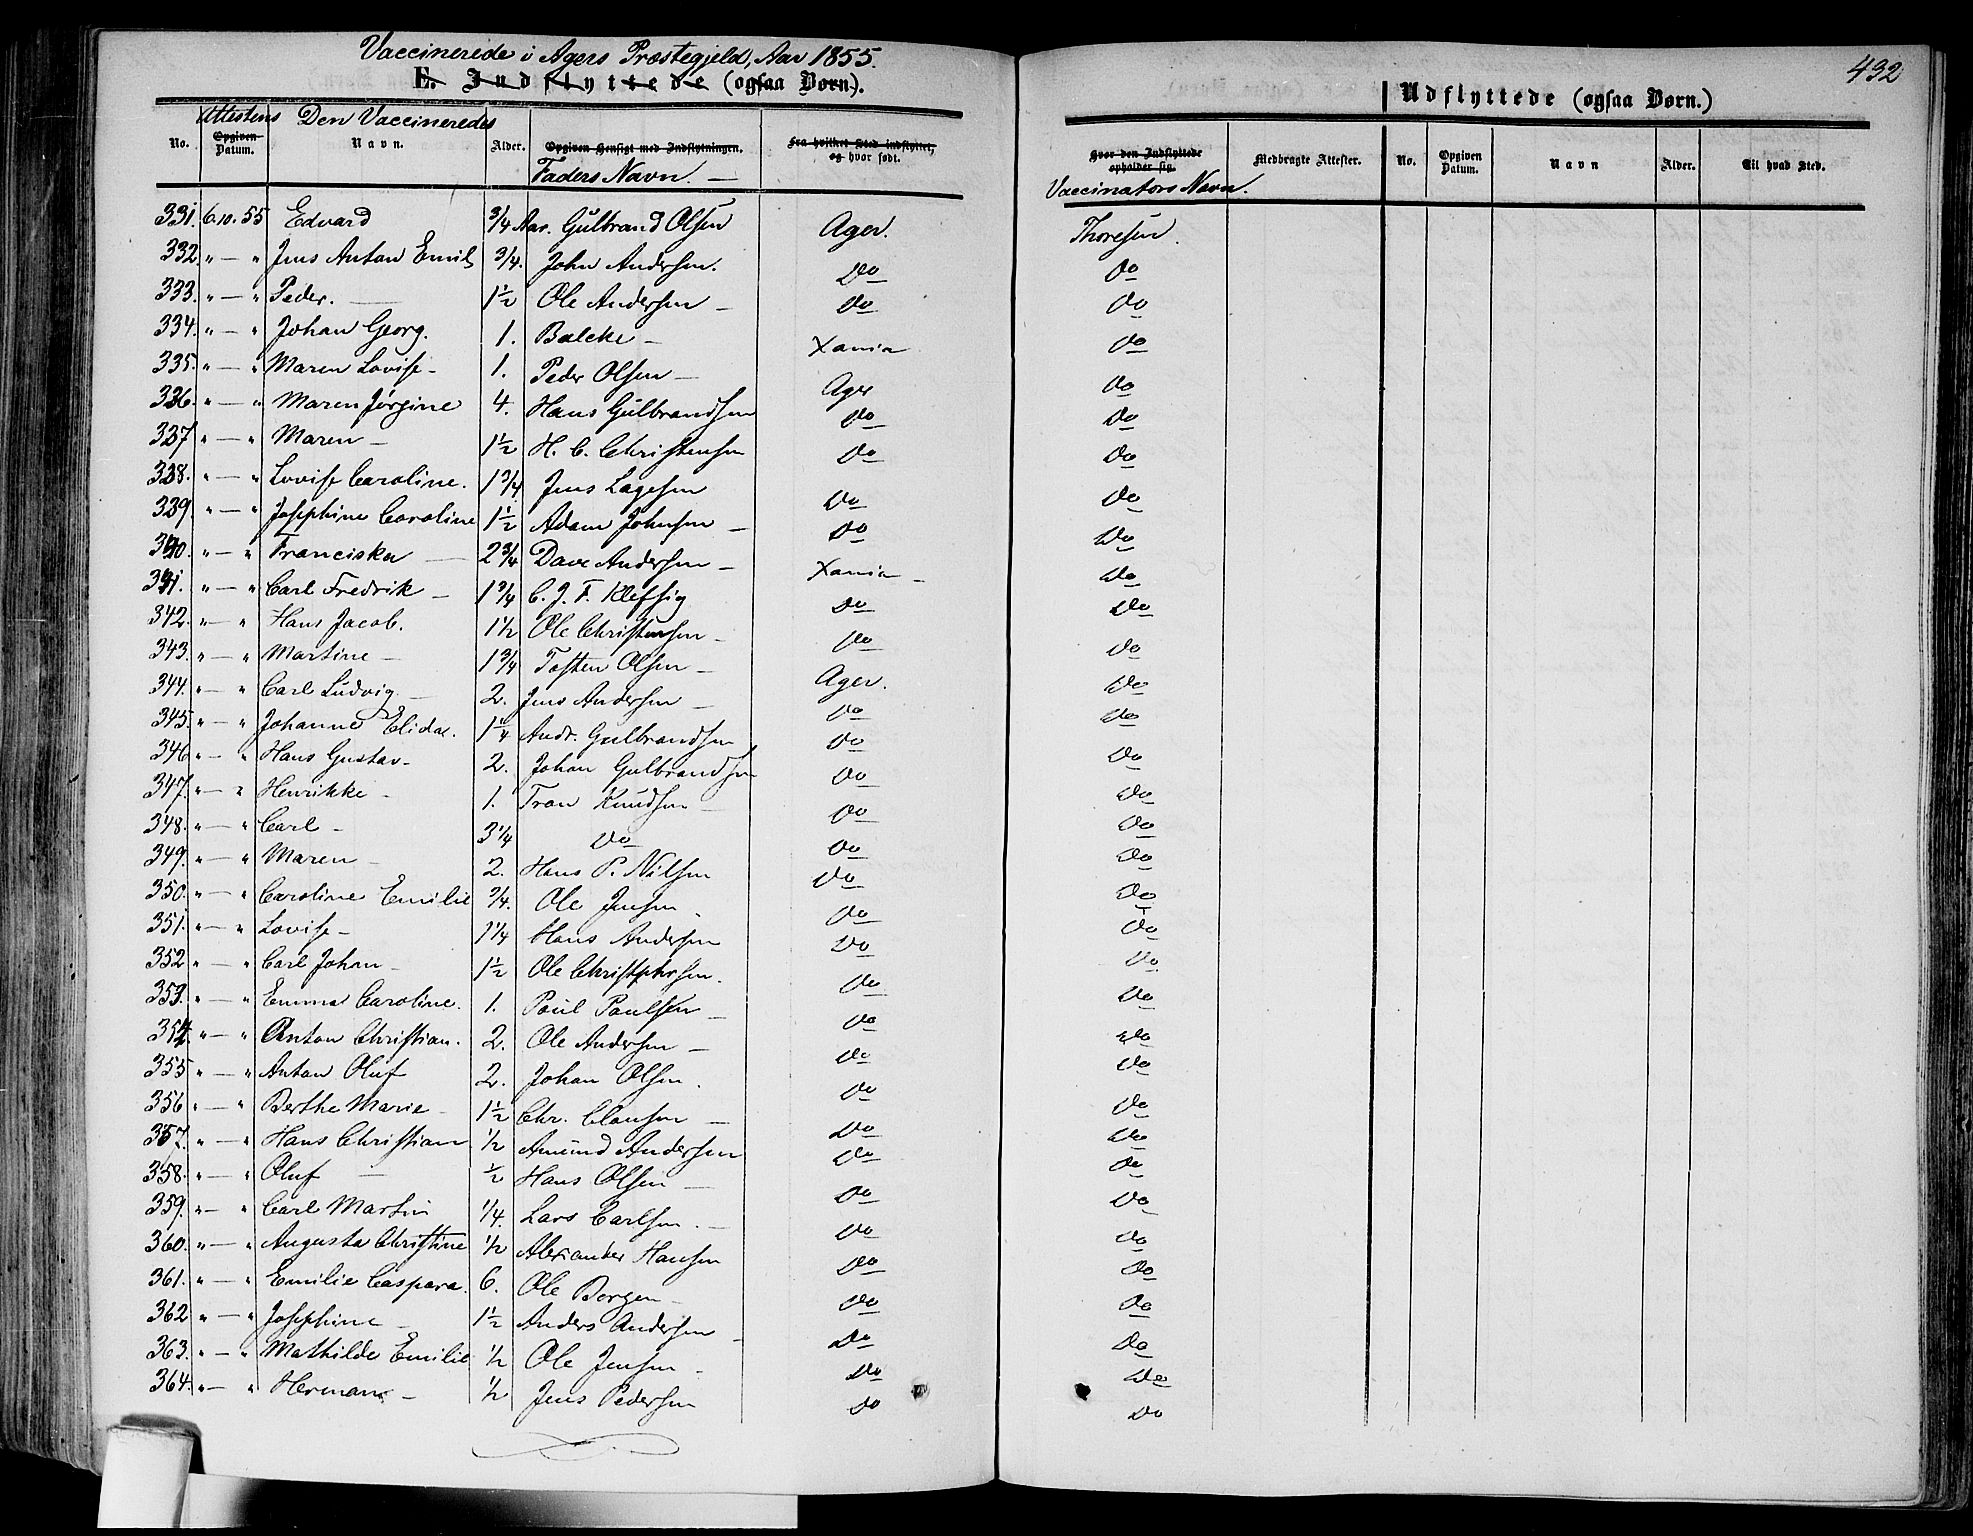 Vaccinerede i Agers Præstegjeld, Aar 1855.
E. Indflyttede (ogsaa Børn).
Attestens Den Vaccineredes
No. Opgiven Datum. Navn. Alder. Opgiven Hensigt med Indflytningen. Fra hvilket Sted indflyttet, og hvor født.
Faders Navn. —
331. 6.10.55 Edvard 3/4 Aar. Gulbrand Olsen Ager. Thoresen.
332. " — " Jens Anton Emil 3/4. John Andersen. Do Do
333. " — " Peder. — 1½ Ole Andersen — Do Do
334. " — " Johan Georg. 1. Balcke — Xania Do
335. " — " Maren Lovise — 1. Peder Olsen — Ager Do
336. " — " Maren Jørgine 4. Hans Gulbrandsen Do Do
337 " — " Maren — 1½ H. C. Christensen Do Do
338. " — " Lovise Caroline. 1 3/4 Jens Lagesen Do Do
339. " — " Josephine Caroline 1½ Adam Johnsen — Do Do
340. " — " Franciska — 2 3/4 Dave Andersen — Xania — Do
341. " — " Carl Fredrik — 1 3/4 C. J. F. Klefsig Do Do
342. " — " Hans Jacob. 1½ Ole Christensen — Do Do
343. " — " Martine — 1 3/4 Tosten Olsen — Ager. Do
344. " — " Carl Ludvig. — 2. Jens Andersen — Do Do
345. " — " Johanne Elida. 1¼ Andr. Gulbrandsen Do Do
346 " — " Hans Gustav — 2. Johan Gulbrandsen Do Do
347. " — " Henrikke — 1. Tron Knudsen — Do Do
348. " — " Carl — 3¼ Do Do Do
349. " — " Maren — 2. Hans P. Nilsen Do Do
350. " — " Caroline Emilie 3/4. Ole Jensen. Do Do
351. " — " Lovise — 1¼ Hans Andersen Do Do
352 " — " Carl Johan — 1½ Ole Christphersen. Do Do
353. " — " Emma Caroline. 1. Paul Paulsen — Do Do
354. " — " Anton Christian. 2. Ole Andersen — Do Do
355 " — " Anton Oluf 2. Johan Olsen. Do Do
356 " — " Berthe Marie — 1½ Chr. Clausen — Do Do
357. " — " Hans Christian ½ Amund Andersen Do Do
358. " — " Oluf — ½ Hans Olsen — Do Do
359. " — " Carl Martin ¼. Lars Carlsen. — Do Do
360. " — " Augusta Christine ½ Alexander Hansen Do Do
361. " — " Emilie Caspara. 6. Ole Borgen — Do Do
362 " — " Josephine — 1½ Anders Andersen — Do Do
363. " — " Mathilde Emilie ½ Ole Jensen — Do Do
364. " — " Herman. — ½ Jens Pedersen Do Do
432
Udflyttede (ogsaa Børn.)
Hvor den Indflyttede opholder sig. Medbragte Attester. No. Opgiven Datum. Navn Alder. Til hvad Sted.
Vaccinators Navn.